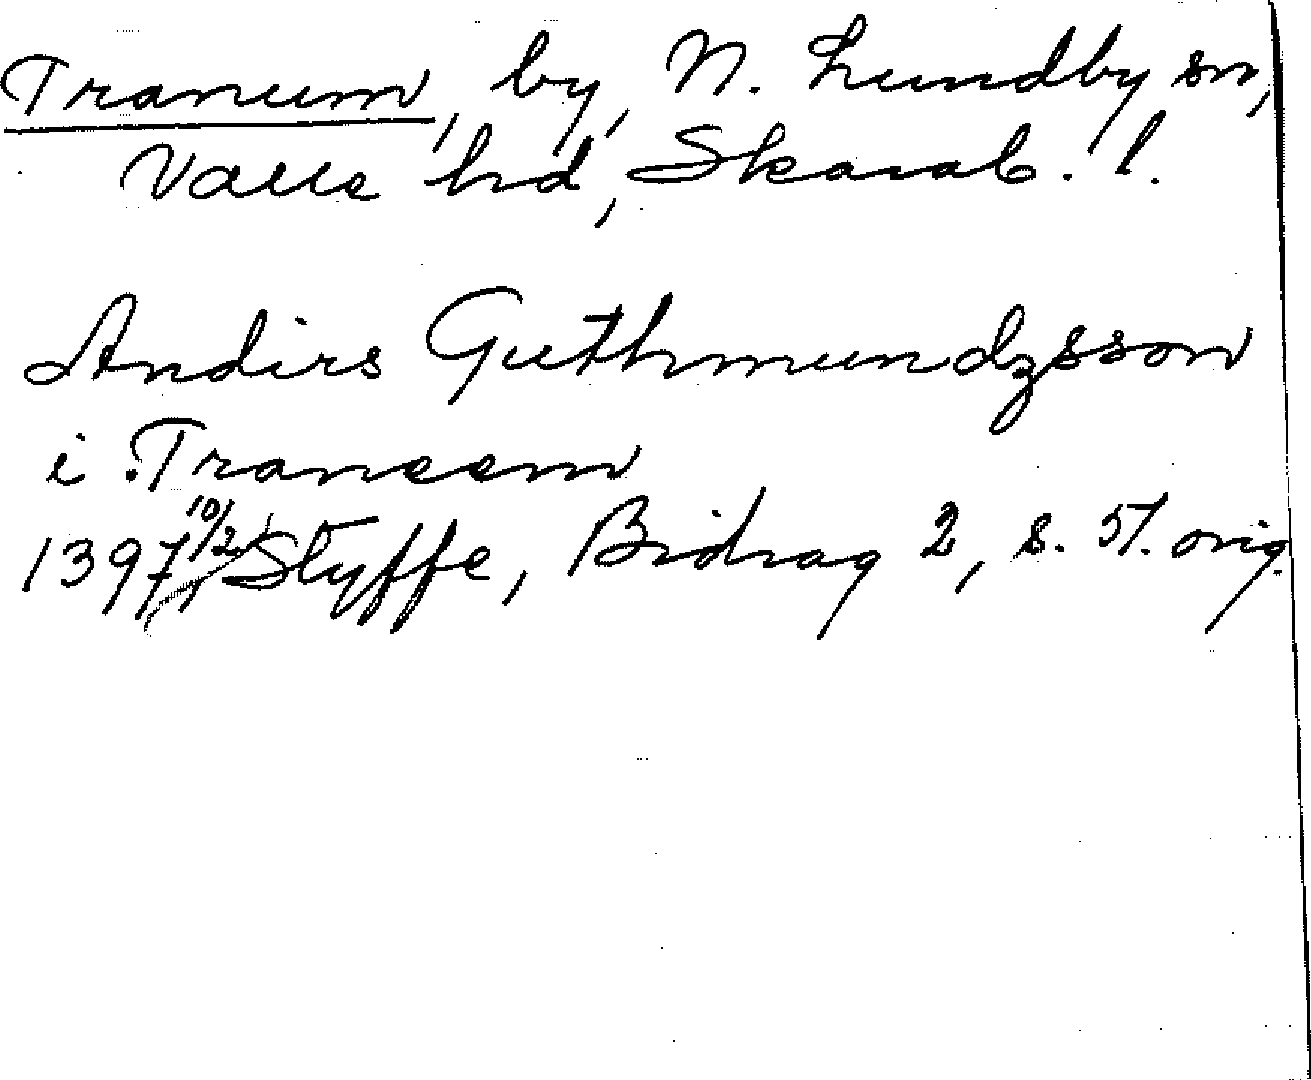 Tranum, by, N. Lundby sn,
Valle hd, Skarab. l.
Andirs Guthmundzsson
i Traneem
1397 10/2 Styffe, Bidrag 2, s. 51. orig.